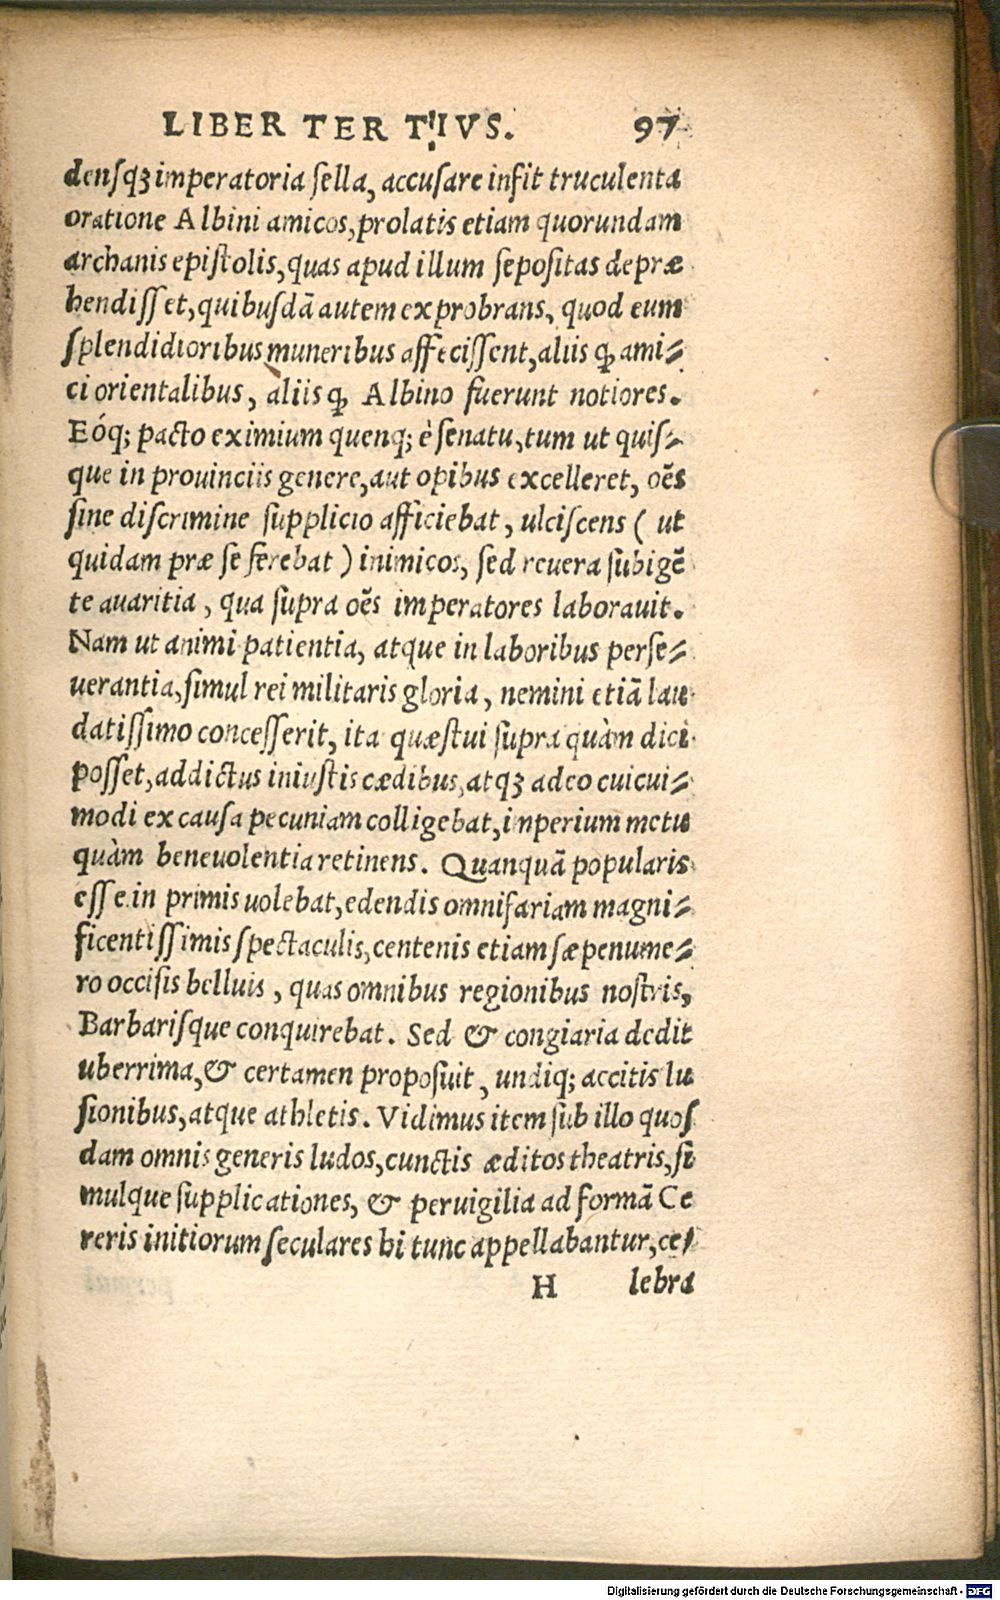 LIBER TERTIVS. 97
densqꝫ imperatoria sella, accusare infit truculenta
oratione Albini amicos, prolatis etiam quorundam
archanis epistolis, quas apud illum sepositas depræ
hendisset, quibusdā autem exprobrans, quod eum
splendidioribus muneribus affecissent, aliis ꝙ ami⸗
ci orientalibus, aliis ꝙ Albino fuerunt notiores.
Eóq; pacto eximium quenq; è senatu, tum ut quis⸗
que in prouinciis genere, aut opibus excelleret, oēs
sine discrimine supplicio afficiebat, ulciscens ( ut
quidam præ se ferebat ) inimicos, sed reuera subigē
te auaritia, qua supra oēs imperatores laborauit.
Nam ut animi patientia, atque in laboribus perse⸗
uerantia, simul rei militaris gloria, nemini etiā lau
datissimo concesserit, ita quæstui supra quàm dici
posset, addictus iniustis cædibus, atqꝫ adeo cuicui⸗
modi ex causa pecuniam colligebat, inperium metu
quàm beneuolentia retinens. Quanquā popularis
esse in primis uolebat, edendis omnifariam magni⸗
ficentissimis spectaculis, centenis etiam sæpenume⸗
ro occisis belluis, quas omnibus regionibus nostris,
Barbarisque conquirebat. Sed & congiaria dedit
uberrima, & certamen proposuit, undiq; accitis lu
sionibus, atque athletis. Vidimus item sub illo quos
dam omnis generis ludos, cunctis æditos theatris, si
mulque supplicationes, & peruigilia ad formā Ce
reris initiorum seculares hi tunc appellabantur, ce⸗
H lebra
Digitalisierung gefördert durch die Deutsche Forschungsgemeinschaft - DFG